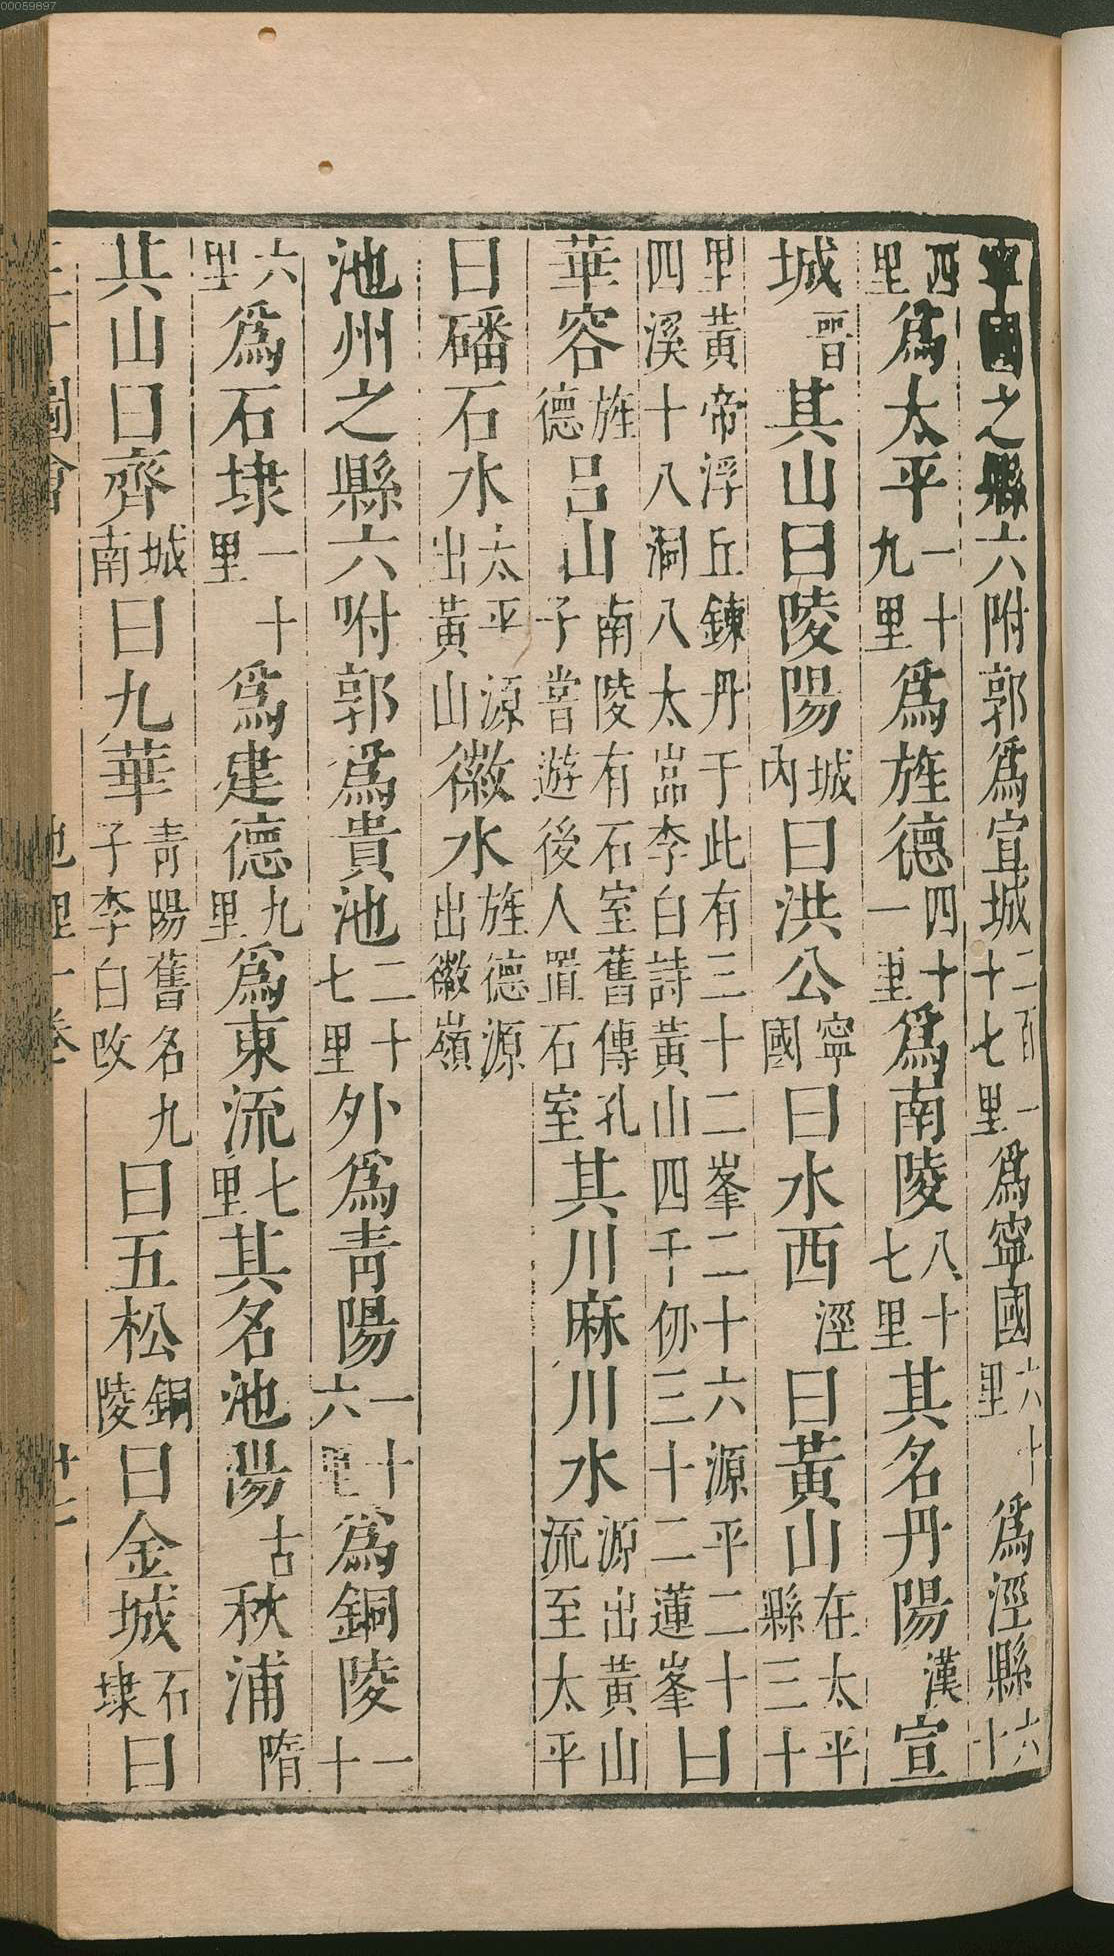 寧國之縣六附郭爲宣城二百一十七里爲寧國六十里爲涇縣六十
西里爲太平一十九里爲旌德四十一里爲南陵八十七里其名丹陽漢宣
城晉其山曰陵陽城內曰洪公寧國曰水西涇曰黃山在太平縣三十
里黃帝浮丘鍊丹于此有三十二峯二十六源平二十四溪十八洞八太嵓李白詩黃山四千仞三十二蓮峯曰
華容旌德呂山南陵有石室舊傳孔子嘗遊後人置石室其川麻川水源出黃山流至太平
曰磻石水太平源出黃山徽水旌德源出徽嶺
池州之縣六咐郭爲貴池二十七里外爲青陽一十六里爲銅陵一十
六里爲石埭一十里爲建德九里爲東流七里其名池陽古秋浦隋
其山曰齊城南曰九華青陽舊名九子李白改曰五松銅陵曰金城石埭曰
圖會 地理一卷 廿七
00059897